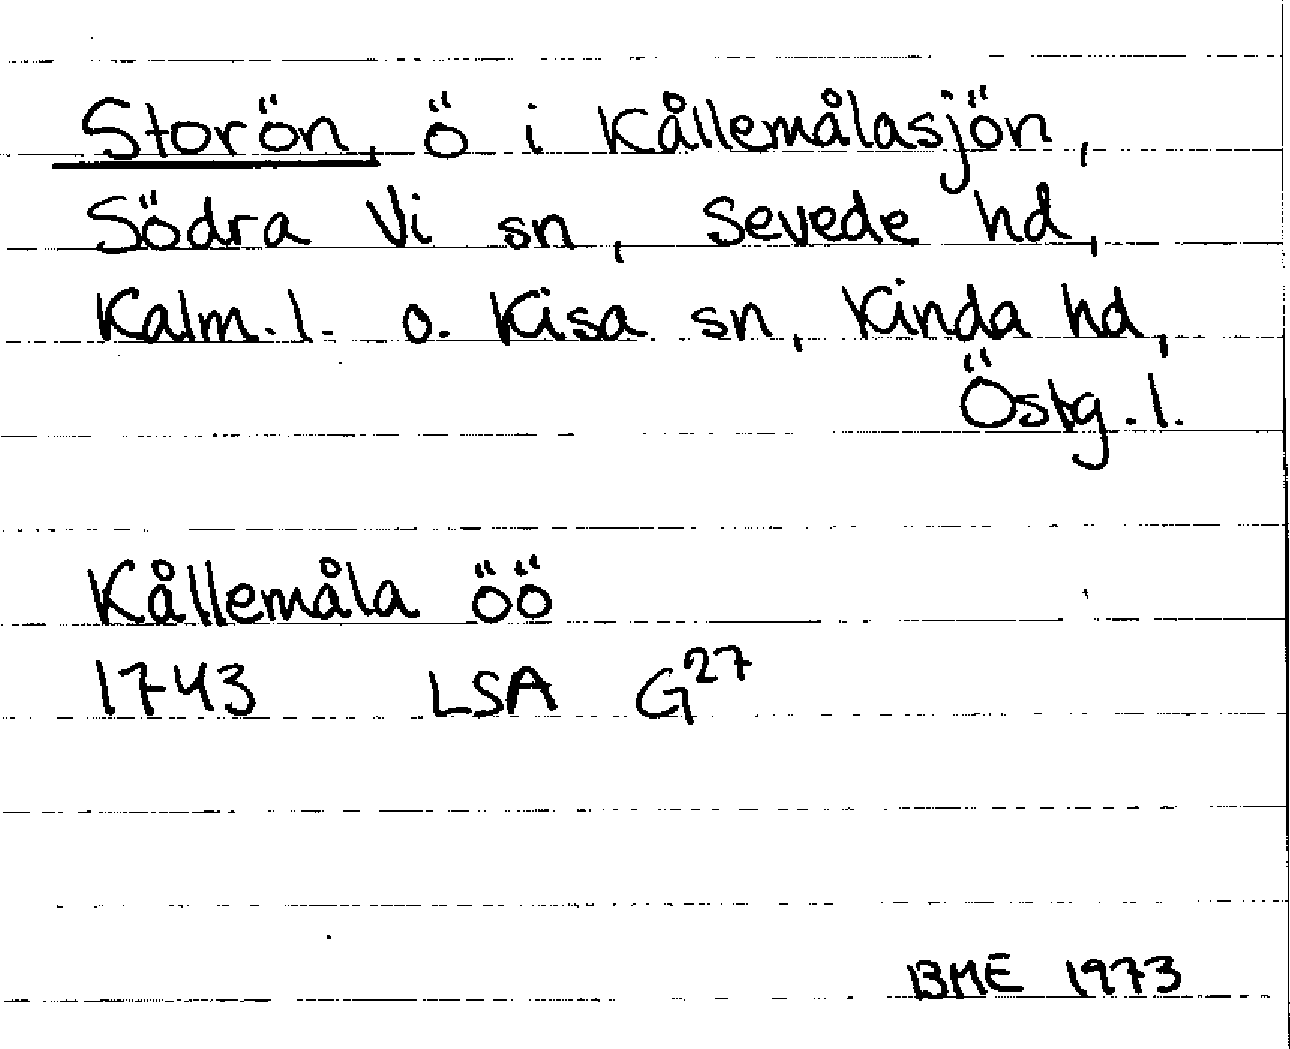 Storön, ö i Kållemålasjön,
Södra Vi sn, Sevede hd,
Kalm. l. o. Kisa sn, Kinda hd,
Östg. l.
Kållemåla öö
1743 LSA G27
BME 1973